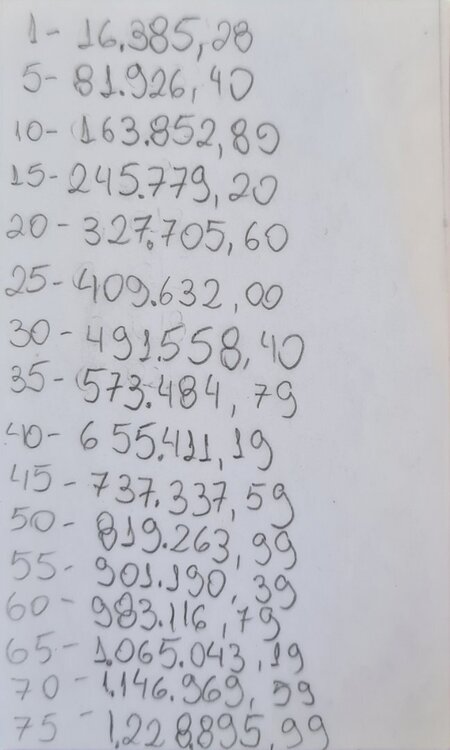 1- 16.385,28
5- 81.926,40
10- 163.852,80
15- 245.779,20
20- 327.705,60
25- 409.632,00
30- 491.558,40
35- 573.484,79
40- 655.411,19
45- 737.337,59
50- 819.263,99
55- 901.190,39
60- 983.116,79
65- 1.065.043,19
70- 1.146.969,59
75- 1.228.895,99